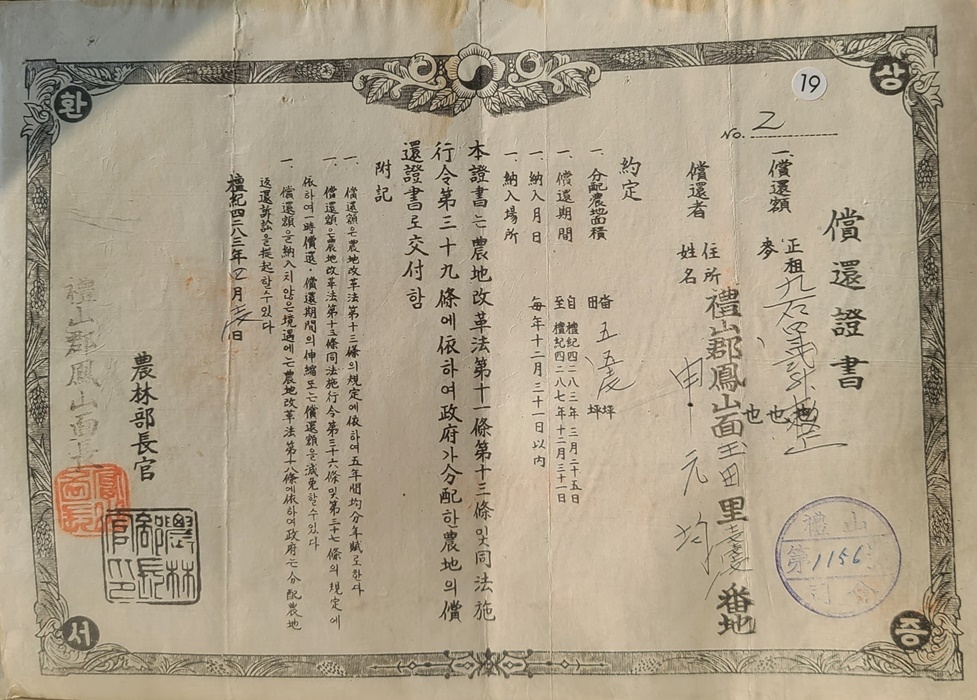 상
환
증
서
19
No. 2
償還證書
一. 償還額
正租
麥
償還者
住所
禮山郡鳳山面玉田里
番地
姓名
申元均
約定
一. 分配農地面積
畓
坪
田
坪
一. 償還期間
自 檀紀四二八三年三月二十五日
至 檀紀四二八七年十二月三十一日
一. 納入月日
每年十二月三十一日以內
一. 納入場所
本證書는農地改革法第十一條第十三條및同法施
行令第三十九條에依하여政府가分配한農地의償
還證書로交付함
附記
一. 償還額은農地改革法第十三條의規定에依하여五年間均分年賦로한다
一. 償還額은農地改革法第十三條同法施行令第三十六條및第三十七條의規定에
依하여一時償還·償還期間의伸縮또는償還額을減免할수있다
一. 償還額을納入지않은境遇에는農地改革法第十八條에依하여政府는分配農地
返還訴訟을提起할수있다
檀紀四二八三年 月 日
農林部長官
禮山郡鳳山面長
農林部長官印
第1156